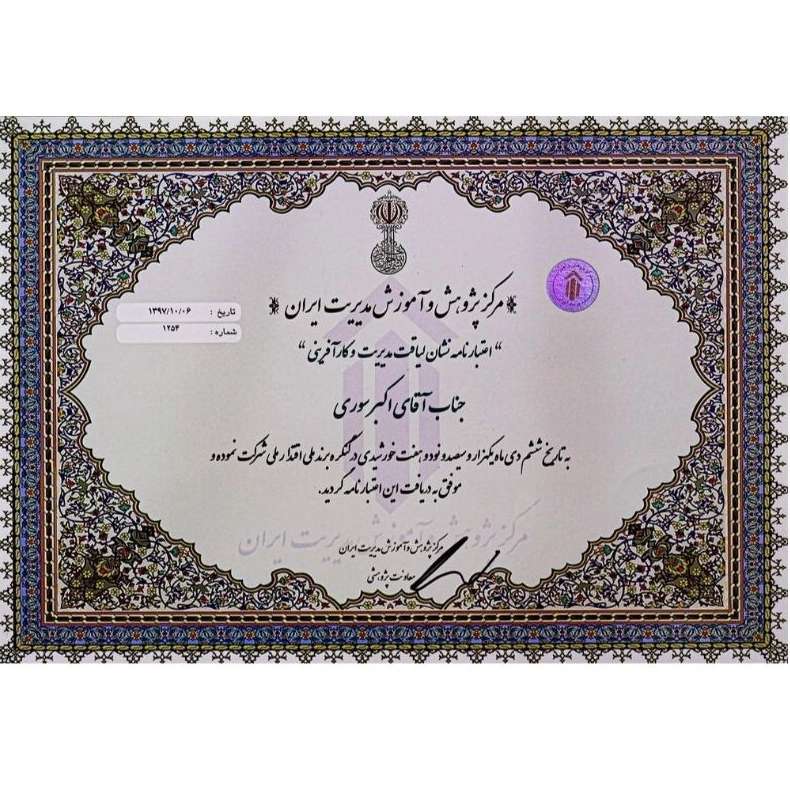 تاریخ : ۱۳۹۷/۱۰/۰۶
شماره : ۱۲۵۴
مرکز پژوهش و آموزش مدیریت ایران
"اعتبارنامه نشان لیاقت مدیریت و کارآفرینی"
جناب آقای اکبر سوری
به تاریخ ششم دی ماه یکهزار و سیصد و نود و هفت خورشیدی در کنگره برند ملی اقتدار ملی شرکت نموده و
موفق به دریافت این اعتبارنامه گردید.
مرکز پژوهش و آموزش مدیریت ایران
مرکز پژوهش و آموزش مدیریت ایران
معاونت پژوهشی